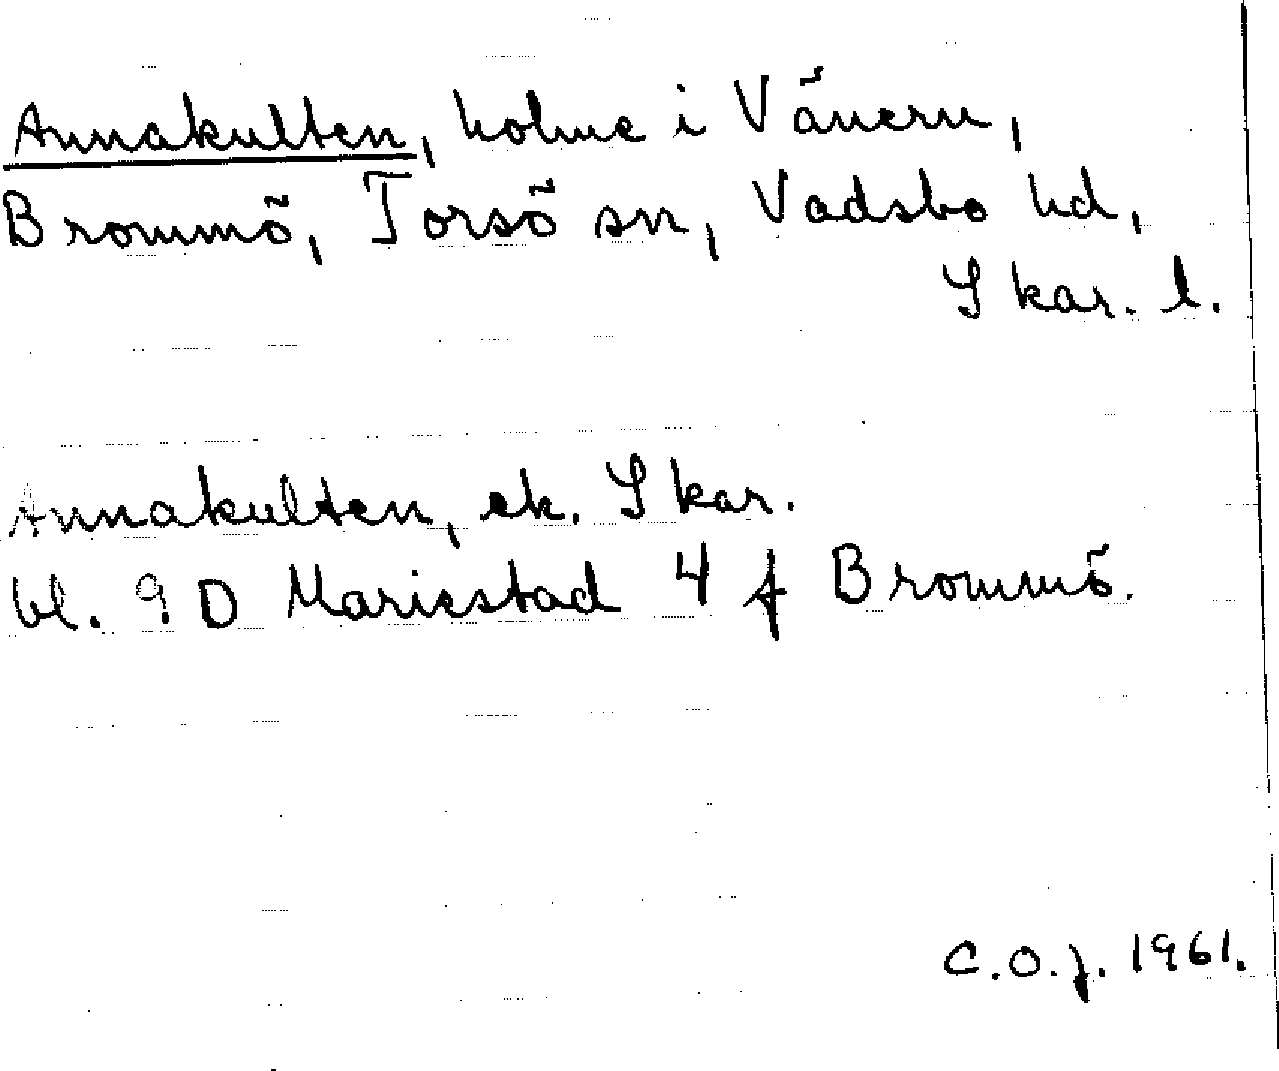 Annakulten, holme i Vänern,
Brommö, Torsö sn, Vadsbo hd,
Skar. l.
Annakulten, ek. Skar.
bl. 9 D Mariestad 4 f Brommö.
C.O.J. 1961.